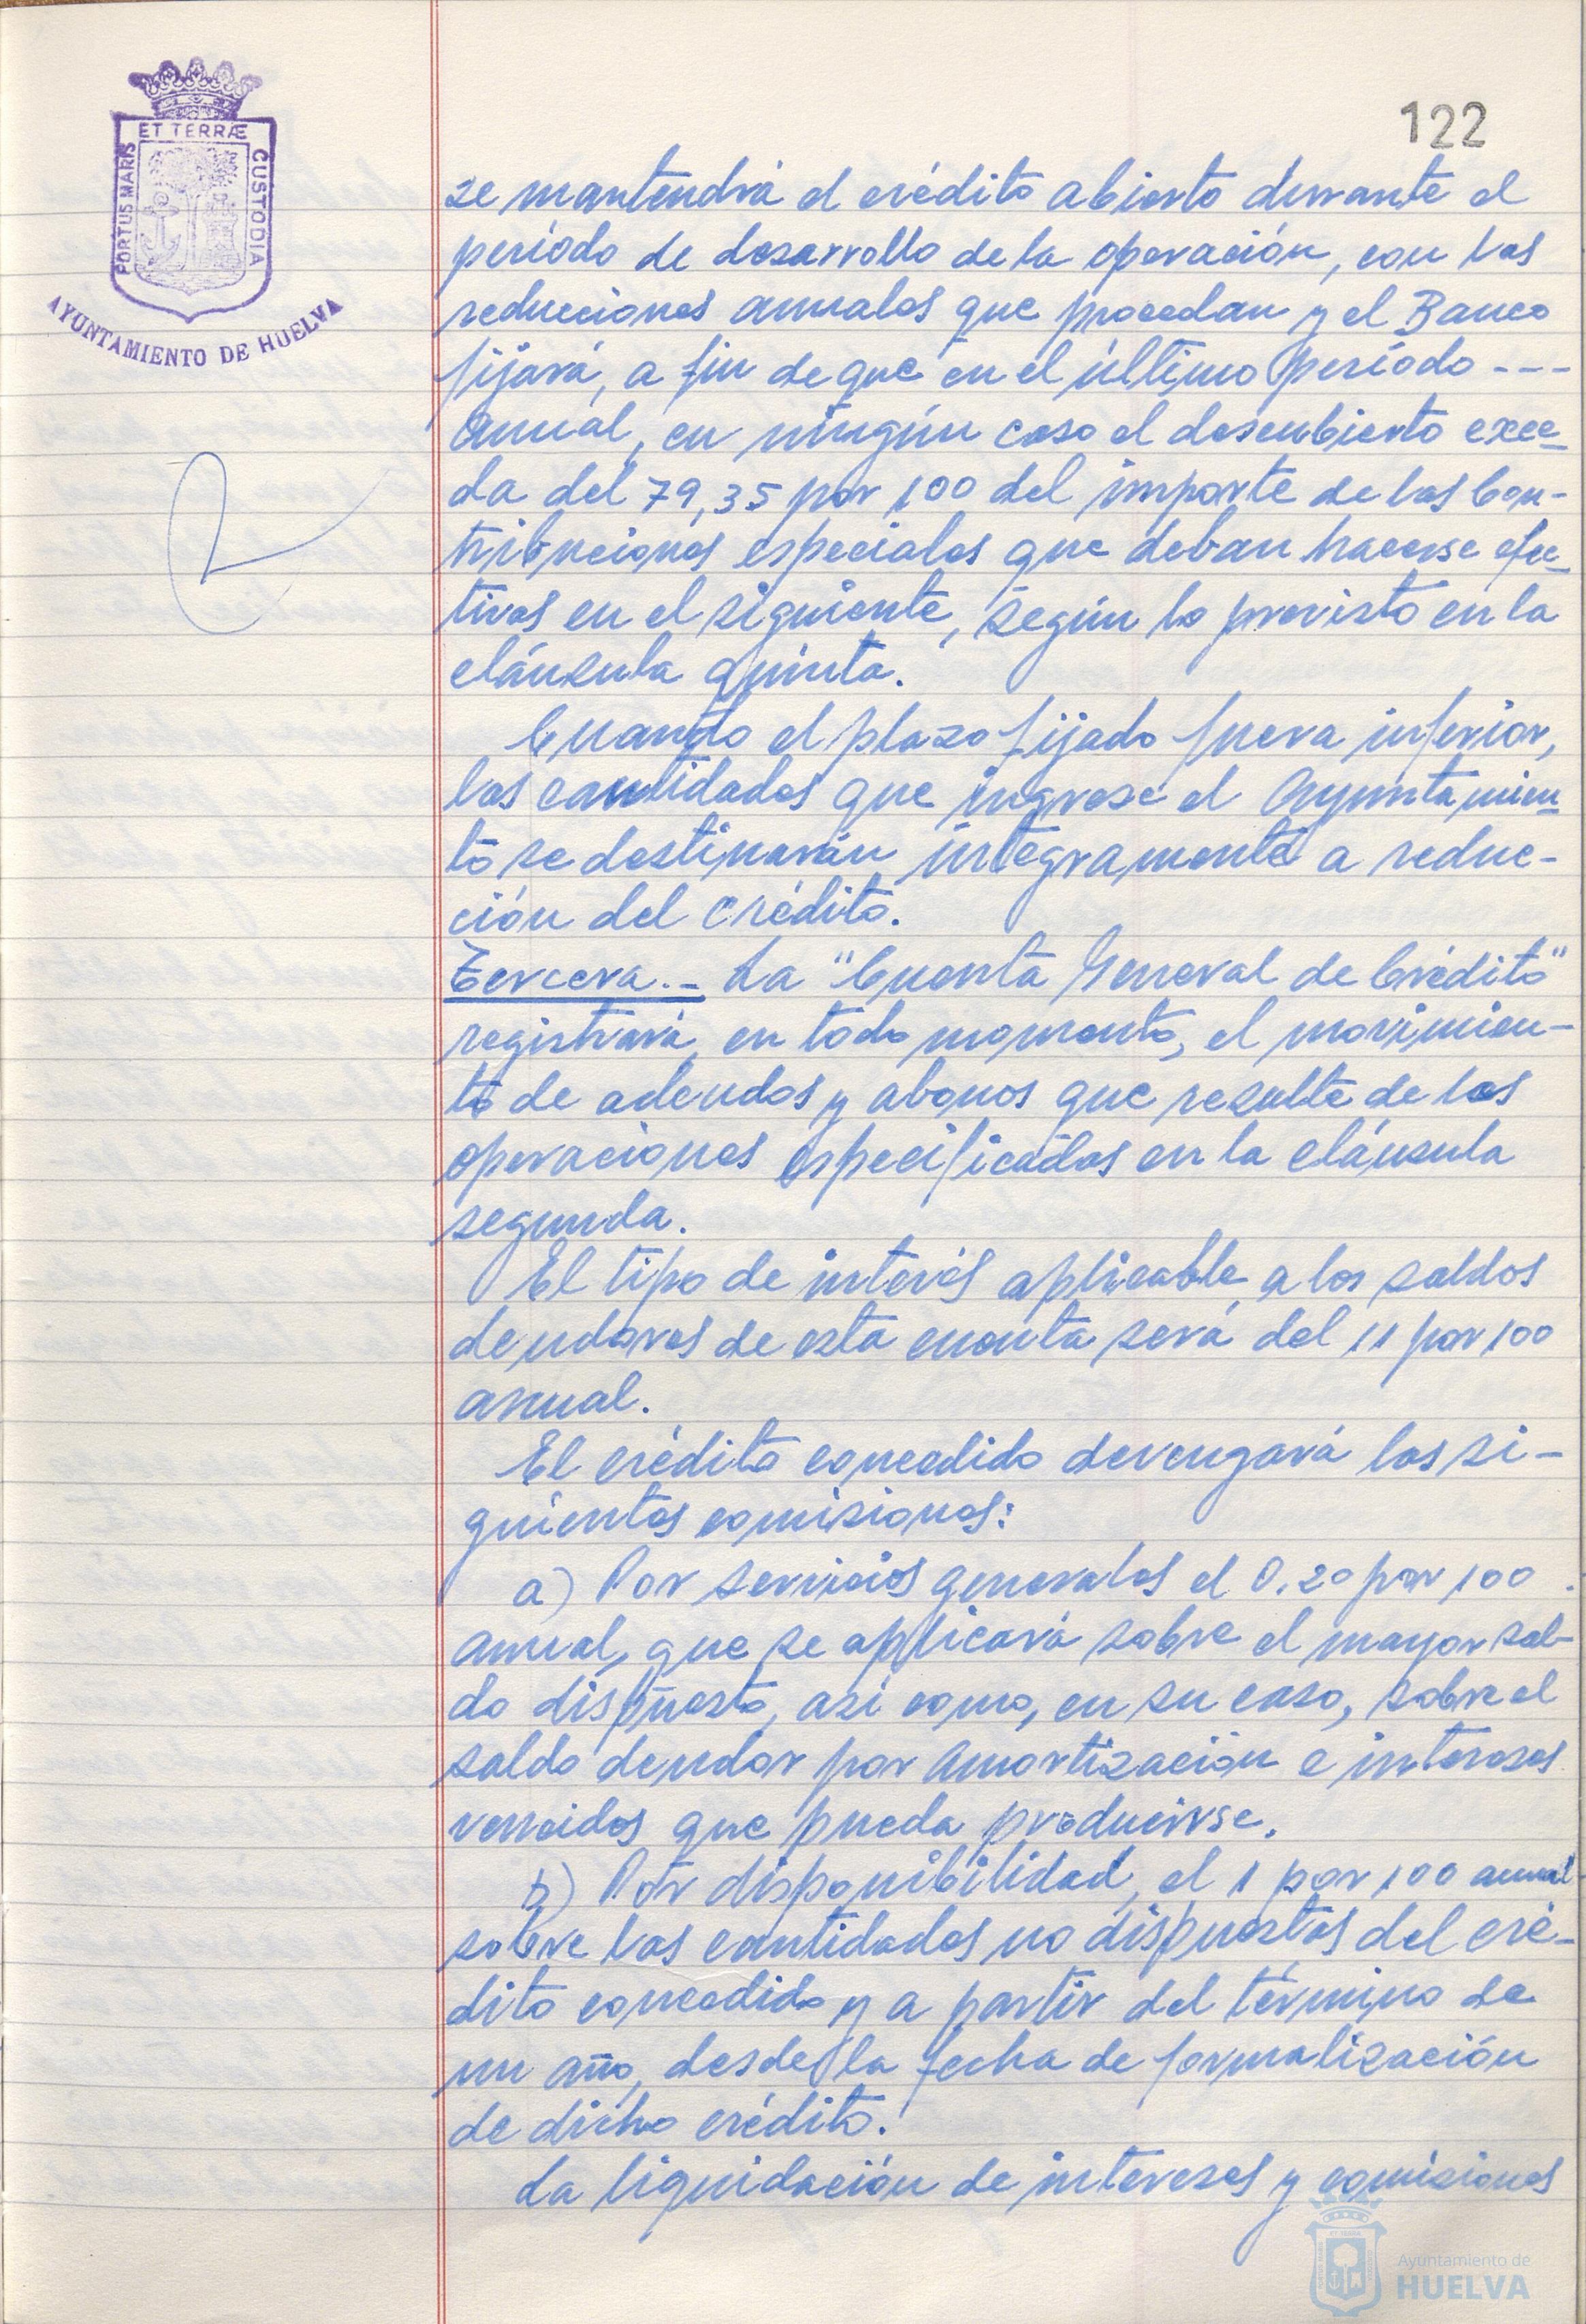 ET TERRÆ
PORTUS MARIS
CUSTODIA
AYUNTAMIENTO DE HUELVA
122
se mantendrá el crédito abierto durante el
período de desarrollo de la operación, con las
reducciones anuales que procedan y el Banco
fijará, a fin de que en el último período ---
anual, en ningún caso el descubierto exce-
da del 79,35 por 100 del importe de las Con-
tribuciones especiales que deban hacerse efec-
tivas en el siguiente, según lo previsto en la
cláusula quinta.
Cuando el plazo fijado fuera inferior,
las cantidades que ingrese el Ayuntamien-
to se destinarán íntegramente a reduc-
ción del crédito.
Tercera.- La "Cuenta General de Crédito"
registrará, en todo momento, el movimien-
to de adeudos y abonos que resulte de las
operaciones especificadas en la cláusula
segunda.
El tipo de interés aplicable a los saldos
deudores de esta cuenta será del 11 por 100
anual.
El crédito concedido devengará las si-
guientes comisiones:
a) Por servicios generales el 0.20 por 100
anual, que se aplicará sobre el mayor sal-
do dispuesto, así como, en su caso, sobre el
saldo deudor por amortización e intereses
vencidos que pueda producirse.
b) Por disponibilidad, el 1 por 100 anual
sobre las cantidades no dispuestas del cré-
dito concedido y a partir del término de
un año, desde la fecha de formalización
de dicho crédito.
La liquidación de intereses y comisiones
Ayuntamiento de
HUELVA